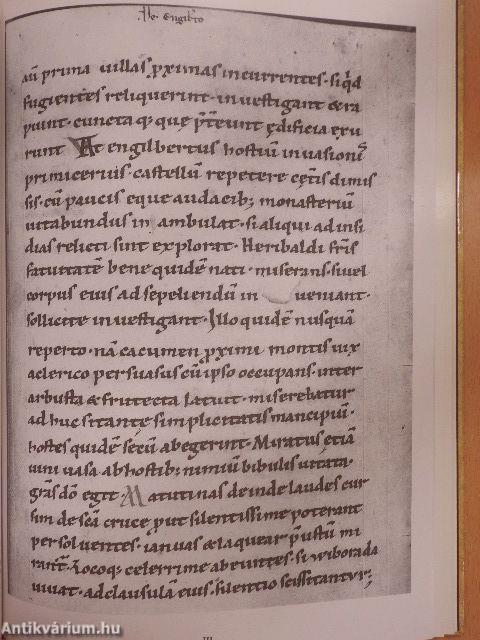 De Engilbto
aū prima villas p̱ximas incurrentes· siq̄d
fugientes reliquerint· investigant & ra
piunt· cuncta q; que p̄tereunt ędificia exu
runt At engilbertus hostiū invasionē
primicerius· castellū repetere cęt̄is dimis
sis· cū paucis eque audacib; monasteriū
vitabundus in ambulat· si aliqui ad insi
dias relicti sint explorat· Heribaldi fr̄is
fatuitatē bene quidē nati· miserans· si vel
corpus eius ad sepeliendū in veniant·
sollicite investigant· Illo quidē nusquā
reperto· nā cacumen p̱ximi montis vix
a clerico persuasus cū ipso occupans· inter
arbusta & frutecta latuit· miserebatur
ad huc si tante simplicitatis mancipiū·
hostes quidē secū abegerint· Miratus etiā
vini vasa ab hostib; nimiū bibulis vitata·
gr̄as dō egit· Matutinas deinde laudes cur
sim de sc̄a cruce put silentissime poterant
persolventes· ianuas & laquear p̄ustū mi
rant̄· Locoq; celerrime abeuntes· si wiborada
vivat· ad clausulā eius· silentio scissitantur;
III
Antikvárium.hu